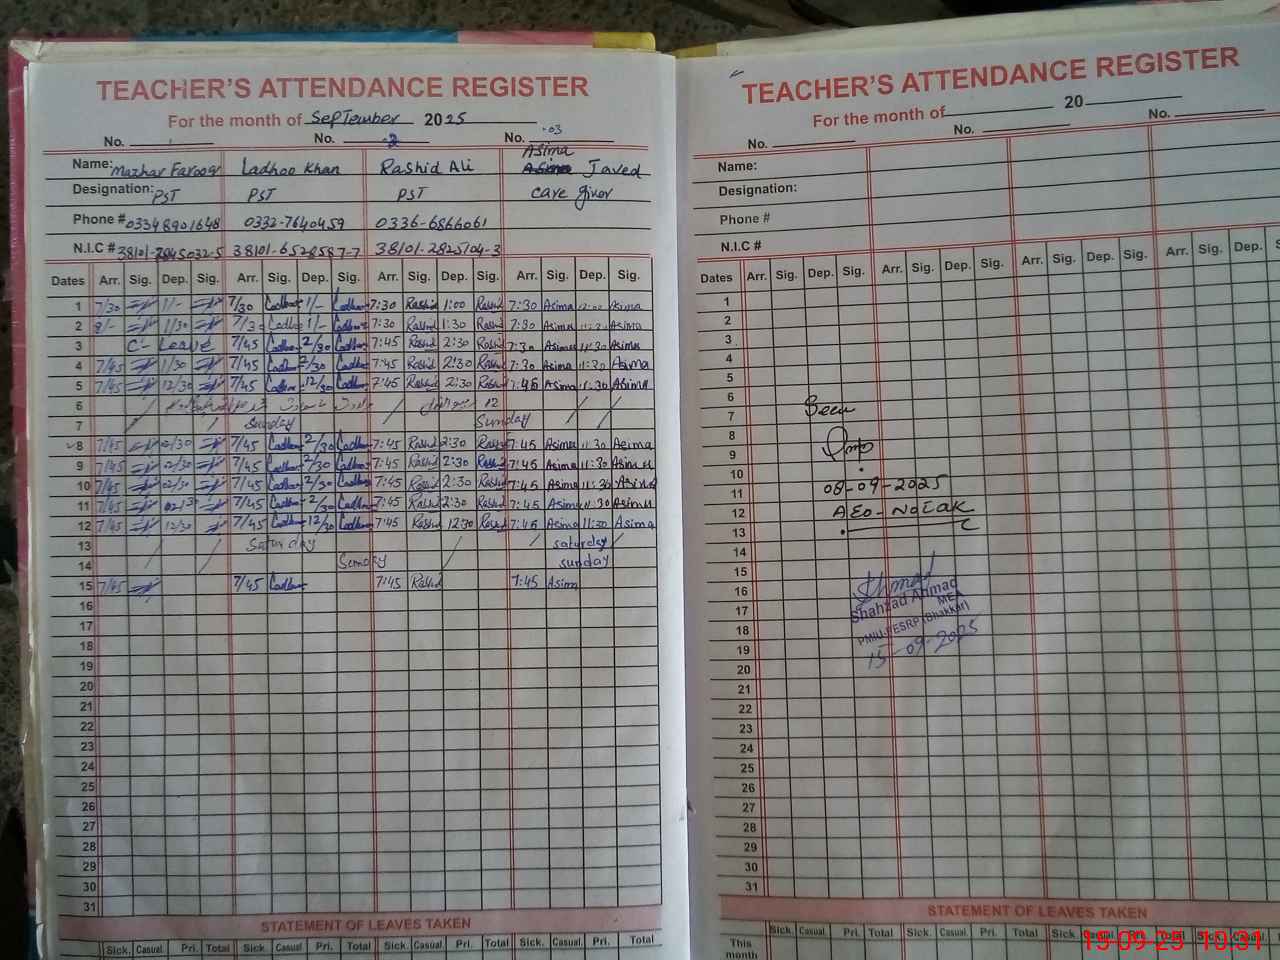 TEACHER'S ATTENDANCE REGISTER
For the month of September 2025
No. No. 2 No. 03
Name: Mazhar Farooq Ladhoo Khan Rashid Ali Asima Javed
Designation: PST PST PST care giver
Phone # 03348901648 0332-7640459 0336-6866061
N.I.C # 38101-6528587-7 38101-2825104-3
Dates Arr. Sig. Dep. Sig. Arr. Sig. Dep. Sig. Arr. Sig. Dep. Sig. Arr. Sig. Dep. Sig.
1 7/30 1/- 7/30 1/- 7:30 Rashid 1:00 Rashid 7:30 Asima 12:00 Asima
2 8/- 1/30 7/3 1/- 7:30 Rashid 1:30 Rashid 7:30 Asima Asima
3 C- Leave 7/45 2/30 7:45 Rashid 2:30 Rashid 7:30 Asima 11:30 Asima
4 7/45 1/30 7/45 2/30 7:45 Rashid 2:30 Rashid 7:30 Asima 11:30 Asima
5 7/45 12/30 7/45 12/30 7:45 Rashid 2:30 Rashid 7:45 Asima 11:30 Asima
6 12
7 Sunday Sunday
8 7/45 02/30 7/45 2/30 7:45 Rashid 2:30 Rashid 7:45 Asima 11:30 Asima
9 7/45 02/30 7/45 2/30 7:45 Rashid 2:30 Rashid 7:45 Asima 11:30 Asima
10 7/45 02/30 7/45 2/30 7:45 Rashid 2:30 Rashid 7:45 Asima 11:30 Asima
11 7/45 02/3 7/45 2/30 7:45 Rashid 2:30 Rashid 7:45 Asima 11:30 Asima
12 7/45 12/30 7/45 12/30 7:45 Rashid 12:30 Rashid 7:45 Asima 11:30 Asima
13 Saturday saturday
14 Sunday sunday
15 7/45 7/45 7:45 Rashid 7:45 Asima
16
17
18
19
20
21
22
23
24
25
26
27
28
29
30
31
STATEMENT OF LEAVES TAKEN
Sick. Casual. Pri. Total Sick. Casual. Pri. Total Sick. Casual. Pri. Total Sick. Casual. Pri. Total
TEACHER'S ATTENDANCE REGISTER
For the month of 20
No. No. No.
Name:
Designation:
Phone #
N.I.C #
Dates Arr. Sig. Dep. Sig. Arr. Sig. Dep. Sig. Arr. Sig. Dep. Sig. Arr. Sig. Dep.
1
2
3
4
5
6
7 Seen
8
9
10
11 08-09-2025
12 AEO-Notak
13
14
15
16 Ahmad
17 Shahzad Ahmad
MEA
18 PMIU-PESRP (Bhakkar)
19 15-09-2025
20
21
22
23
24
25
26
27
28
29
30
31
STATEMENT OF LEAVES TAKEN
This month Sick. Casual. Pri. Total Sick. Casual. Pri. Total Sick. Casual. Pri. Total Sick. Casual.
15-09-25 10:31